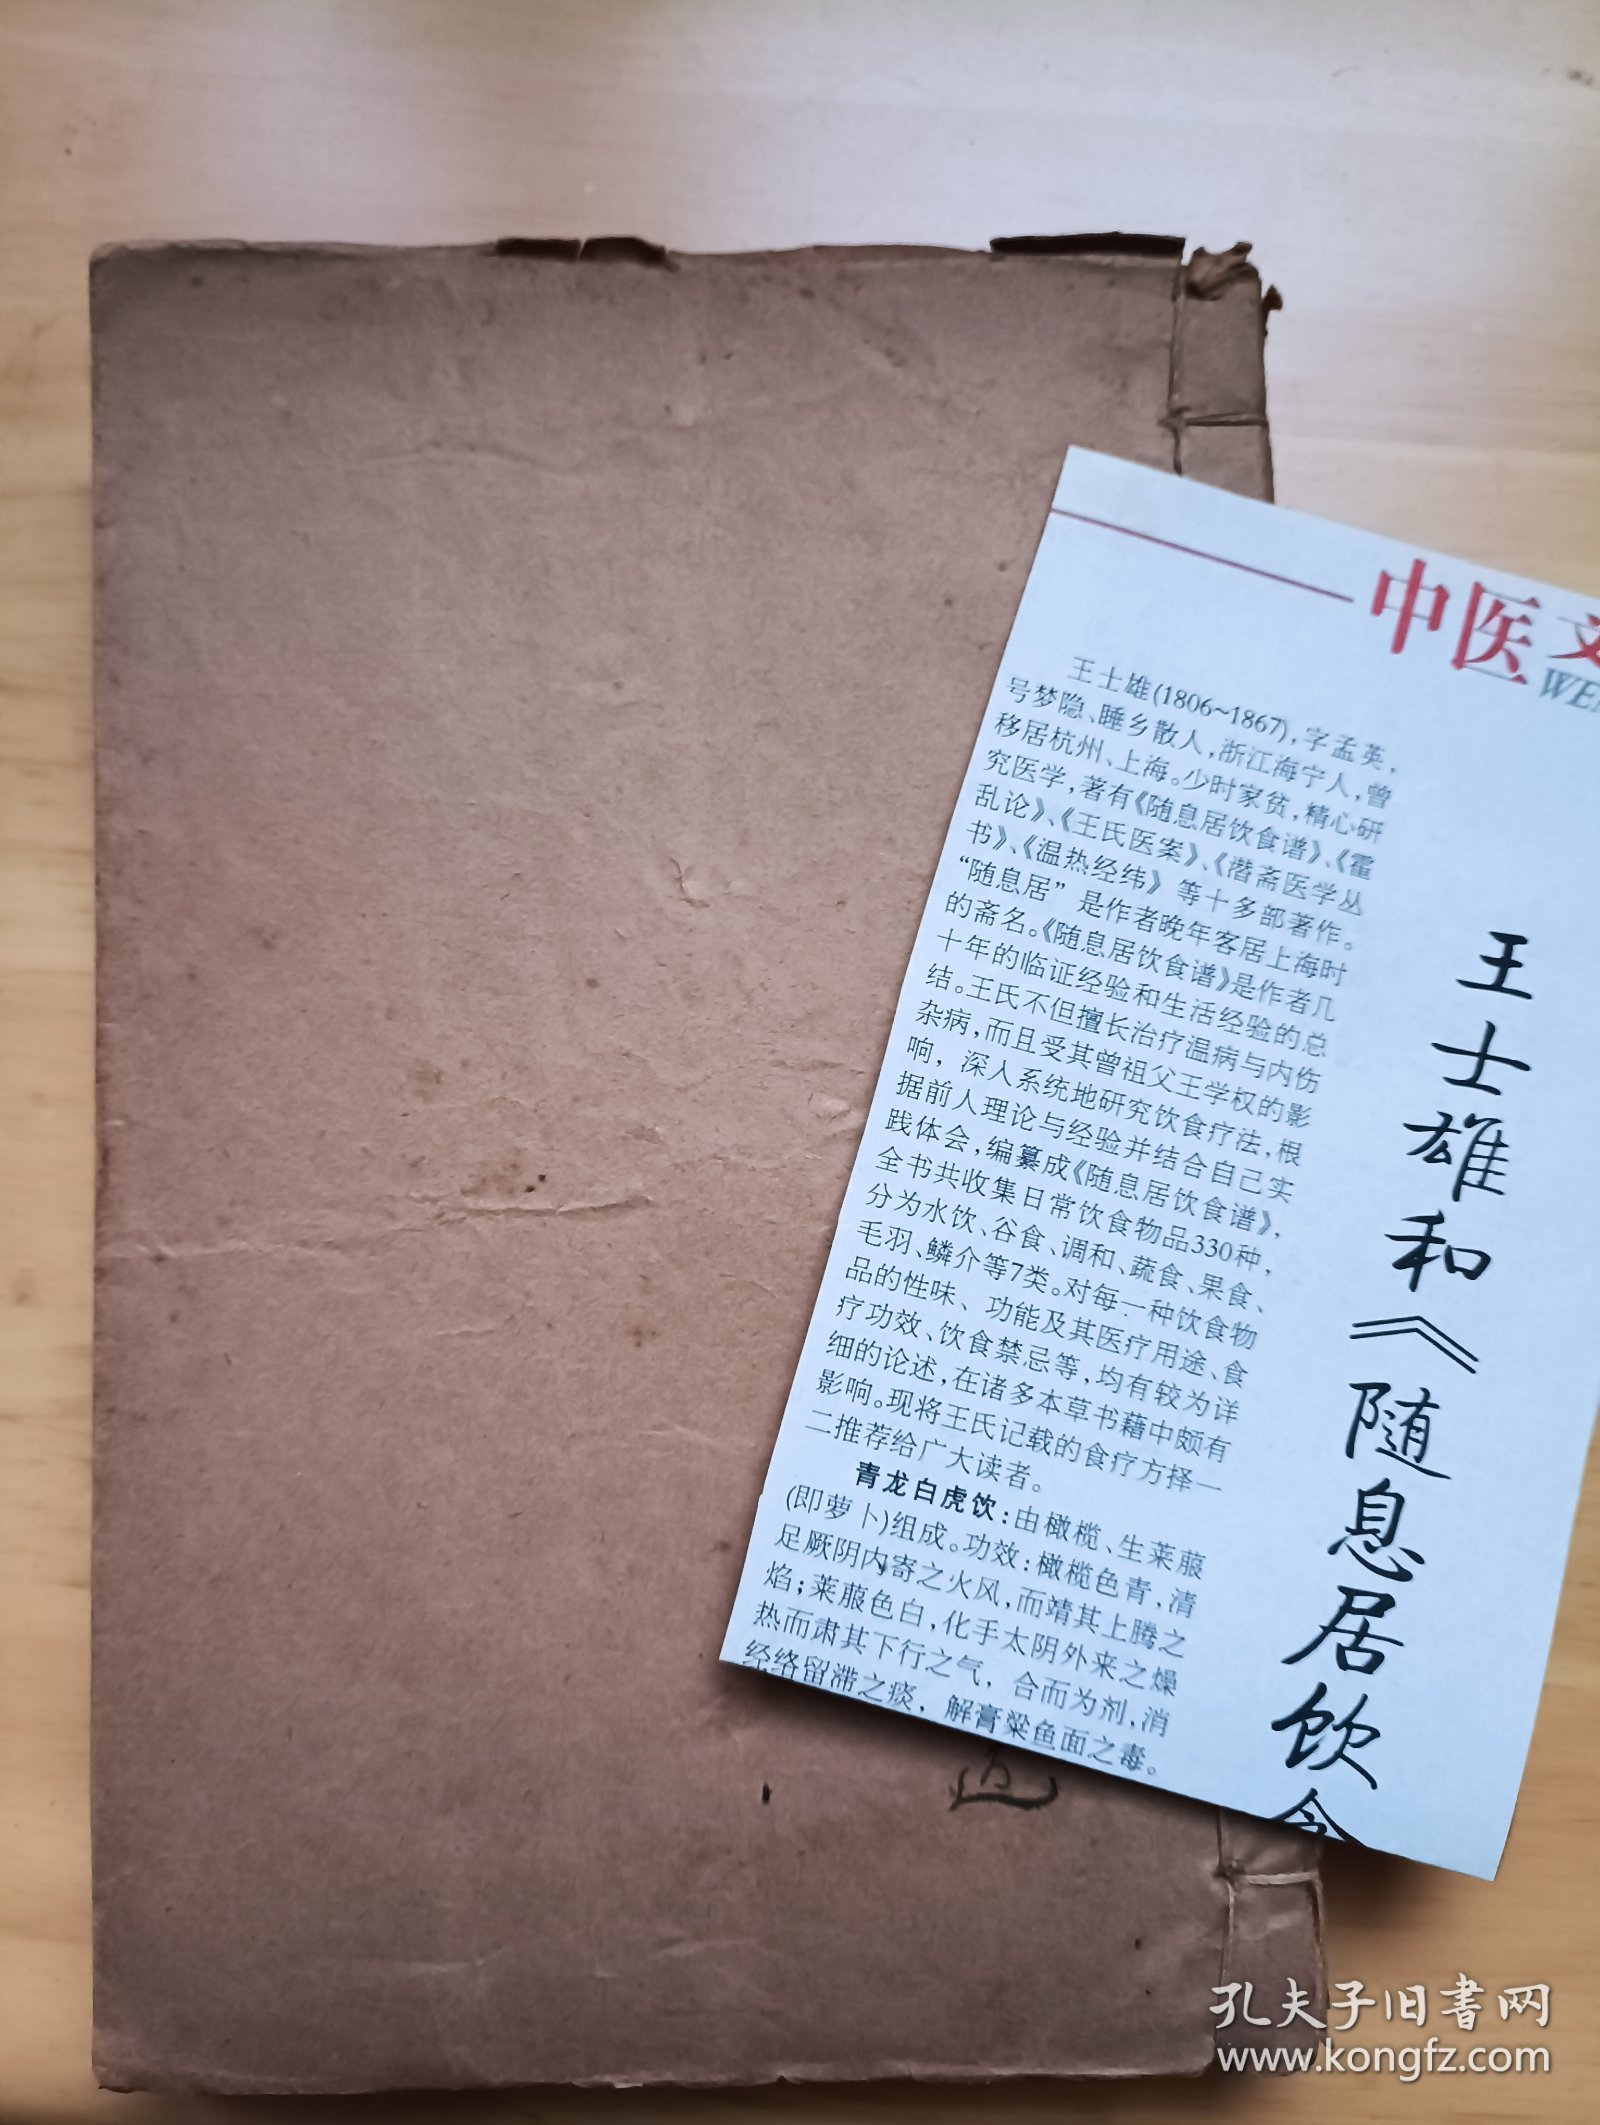 中医文
WEN
王士雄(1806~1867),字孟英,
号梦隐、睡乡散人,浙江海宁人,曾
移居杭州、上海。少时家贫,精心研
究医学,著有《随息居饮食谱》、《霍
乱论》、《王氏医案》、《潜斋医学丛
书》、《温热经纬》等十多部著作。
“随息居”是作者晚年客居上海时
的斋名。《随息居饮食谱》是作者几
十年的临证经验和生活经验的总
结。王氏不但擅长治疗温病与内伤
杂病,而且受其曾祖父王学权的影
响,深入系统地研究饮食疗法,根
据前人理论与经验并结合自己实
践体会,编纂成《随息居饮食谱》,
全书共收集日常饮食物品330种,
分为水饮、谷食、调和、蔬食、果食、
毛羽、鳞介等7类。对每一种饮食物
品的性味、功能及其医疗用途、食
疗功效、饮食禁忌等,均有较为详
细的论述,在诸多本草书籍中颇有
影响。现将王氏记载的食疗方择一
二推荐给广大读者。
青龙白虎饮:由橄榄、生莱菔
(即萝卜)组成。功效:橄榄色青,清
足厥阴内寄之火风,而靖其上腾之
焰;莱菔色白,化手太阴外来之燥
热而肃其下行之气,合而为剂,消
经络留滞之痰,解膏粱鱼面之毒。
王士雄和《随息居饮食
孔夫子旧书网
www.kongfz.com